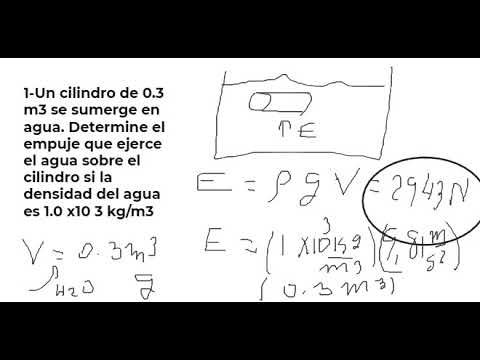 1-Un cilindro de 0.3
m3 se sumerge en
agua. Determine el
empuje que ejerce
el agua sobre el
cilindro si la
densidad del agua
es 1.0 x10 3 kg/m3
↑ E
E = ρ g V = 2943 N
V = 0.3 m3
ρ H2O g
E = (1 x10 3 kg/m3) (9,81 m/s2)
(0.3 m3)